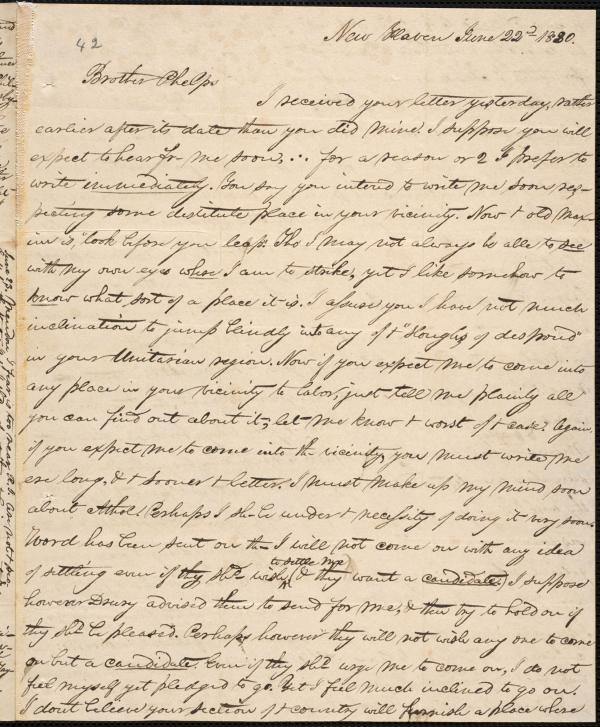 42
New Haven June 22d 1830.
Brother Phelps
I received your letter yesterday, rather
earlier after its date than you did mine. I suppose you will
expect to hear fr- me soon, ... for a reason or 2 I prefer to
write immediately. You say you intend to write me soon res-
pecting some destitute place in your vicinity. Now t old max-
im is, "look before you leap." Tho I may not always be able to see
with my own eyes where I am to strike, yet I like somehow to
know what sort of a place it is. I assure you I have not much
inclination to jump blindly into any of t "sloughs of despond"
in your Unitarian region. Now if you expect me to come into
any place in your vicinity to labor, just tell me plainly all
you can find out about it, let me know t worst of t case. Again,
if you expect me to come into the vicinity, you must write me
ere long, & t sooner t better. I must make up my mind soon
about Athol. Perhaps I sh- be under t necessity of doing it very soon.
Word has been sent on th- I will not come on with any idea
of settling even if they shd wish to settle me, & they want a candidate. I suppose
however Drury advised them to send for me, & then try to hold on if
they shd be pleased. Perhaps however they will not wish any one to come
on but a candidate. Even if they shd urge me to come on, I do not
feel myself yet pledged to go. Yet I feel much inclined to go on.
I don't believe your section of t country will furnish a place where